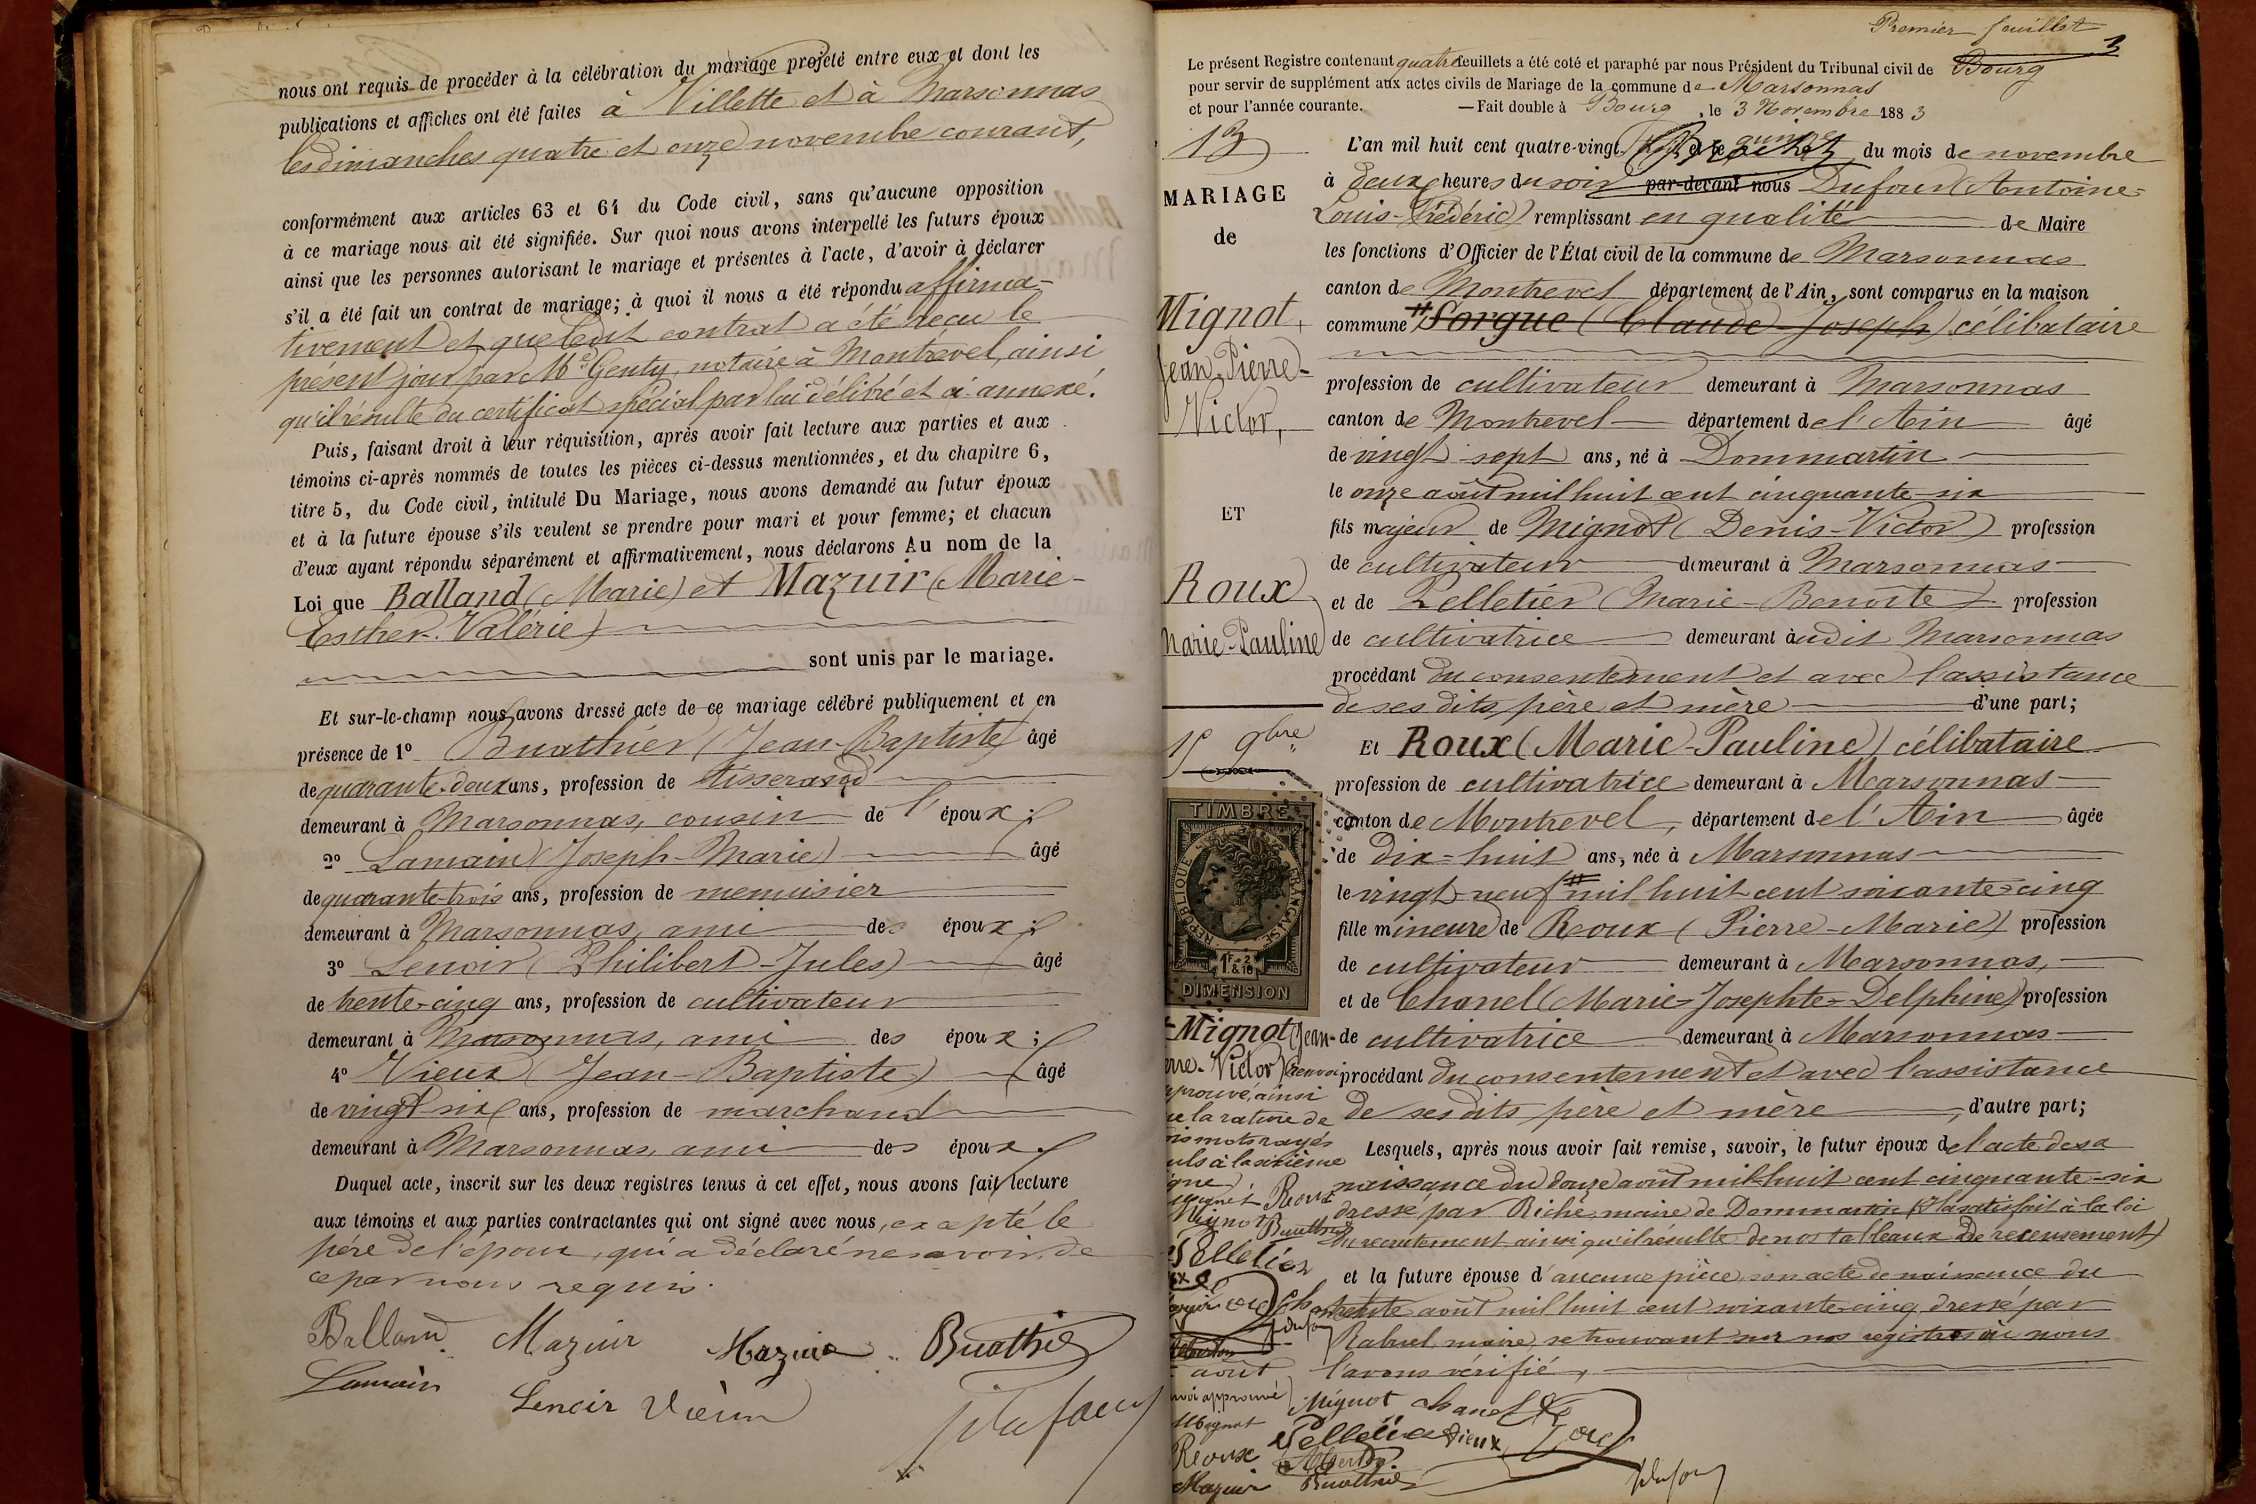 nous ont requis de procéder à la célébration du mariage projeté entre eux et dont les
publications et affiches ont été faites à Villette et à Marsonnas
les dimanches quatre et onze novembre courant,
conformément aux articles 63 et 64 du Code civil, sans qu'aucune opposition
à ce mariage nous ait été signifiée. Sur quoi nous avons interpellé les futurs époux
ainsi que les personnes autorisant le mariage et présentes à l'acte, d'avoir à déclarer
s'il a été fait un contrat de mariage; à quoi il nous a été répondu affirma-
tivement et que ledit contrat a été reçu le
présent jour par Me Genty, notaire à Montrevel, ainsi
qu'il résulte du certificat spécial par lui délivré et ci-annexé.
Puis, faisant droit à leur réquisition, après avoir fait lecture aux parties et aux
témoins ci-après nommés de toutes les pièces ci-dessus mentionnées, et du chapitre 6,
titre 5, du Code civil, intitulé Du Mariage, nous avons demandé au futur époux
et à la future épouse s'ils veulent se prendre pour mari et pour femme; et chacun
d'eux ayant répondu séparément et affirmativement, nous déclarons Au nom de la
Loi que Balland (Marie) et Mazuir (Marie-
Esther-Valérie)
sont unis par le mariage.
Et sur-le-champ nous avons dressé acte de ce mariage célébré publiquement et en
présence de 1° Buathier (Jean-Baptiste) âgé
de quarante-deux ans, profession de tisserand
demeurant à Marsonnas, cousin de l'époux;
2° Lamain (Joseph-Marie) âgé
de quarante-trois ans, profession de menuisier
demeurant à Marsonnas, ami des époux;
3° Lenoir (Philibert-Jules) âgé
de trente-cinq ans, profession de cultivateur
demeurant à Marsonnas, ami des époux;
4° Vieux (Jean-Baptiste) âgé
de vingt six ans, profession de marchand
demeurant à Marsonnas, ami des époux.
Duquel acte, inscrit sur les deux registres tenus à cet effet, nous avons fait lecture
aux témoins et aux parties contractantes qui ont signé avec nous, excepté le
père de l'époux, qui a déclaré ne savoir, de
ce par nous requis.
Balland Mazuir Mazuir Buathier
Lamain Lenoir Vieux
Premier feuillet
3
Le présent Registre contenant quatre feuillets a été coté et paraphé par nous Président du Tribunal civil de Bourg
pour servir de supplément aux actes civils de Mariage de la commune de Marsonnas
et pour l'année courante. — Fait double à Bourg, le 3 Novembre 1883
13
MARIAGE
de
Mignot,
Jean-Pierre-
Victor,
ET
Roux
Marie-Pauline
15 9bre
TIMBRE
RÉPUBLIQUE FRANÇAISE
1F & 2/10
DIMENSION
L'an mil huit cent quatre-vingt- et le quinze du mois de novembre
à deux heures du soir par-devant nous Dufour (Antoine-
Louis-Frédéric) remplissant en qualité de Maire
les fonctions d'Officier de l'État civil de la commune de Marsonnas
canton de Montrevel département de l'Ain, sont comparus en la maison
commune Sorgue (Claude-Joseph) célibataire
profession de cultivateur demeurant à Marsonnas
canton de Montrevel département de l'Ain âgé
de vingt sept ans, né à Dommartin
le onze août mil huit cent cinquante-six
fils majeur de Mignot (Denis-Victor) profession
de cultivateur demeurant à Marsonnas
et de Pelletier (Marie-Benoîte) profession
de cultivatrice demeurant audit Marsonnas
procédant du consentement et avec l'assistance
de ses dits père et mère d'une part;
Et Roux (Marie-Pauline) célibataire
profession de cultivatrice demeurant à Marsonnas
canton de Montrevel, département de l'Ain âgée
de dix-huit ans, née à Marsonnas
le vingt-neuf mil huit cent soixante-cinq
fille mineure de Roux (Pierre-Marie) profession
de cultivateur demeurant à Marsonnas,
et de Chanel (Marie-Josephte-Delphine) profession
de cultivatrice demeurant à Marsonnas
procédant du consentement et avec l'assistance
de ses dits père et mère, d'autre part;
Lesquels, après nous avoir fait remise, savoir, le futur époux de l'acte de sa
naissance du douze août mil-huit cent cinquante-six
dressé par Riche, maire de Dommartin (Il a satisfait à la loi
du recrutement ainsi qu'il résulte de nos tableaux de recensement)
et la future épouse d'aucune pièce, son acte de naissance du
trente août mil huit cent soixante-cinq, dressé par
Rabuel, maire, se trouvant sur nos registres où nous
l'avons vérifié,
Mignot (Jean-
erre-Victor) (renvoi
prouvé, ainsi
ue la rature de
ois mots rayés
uls à la sixième
gne)
Mignot Roux
Buathier
Pelletier
août
Mignot Chanel
Mignot Pelletier Vieux
Roux
Mazuir Buathier